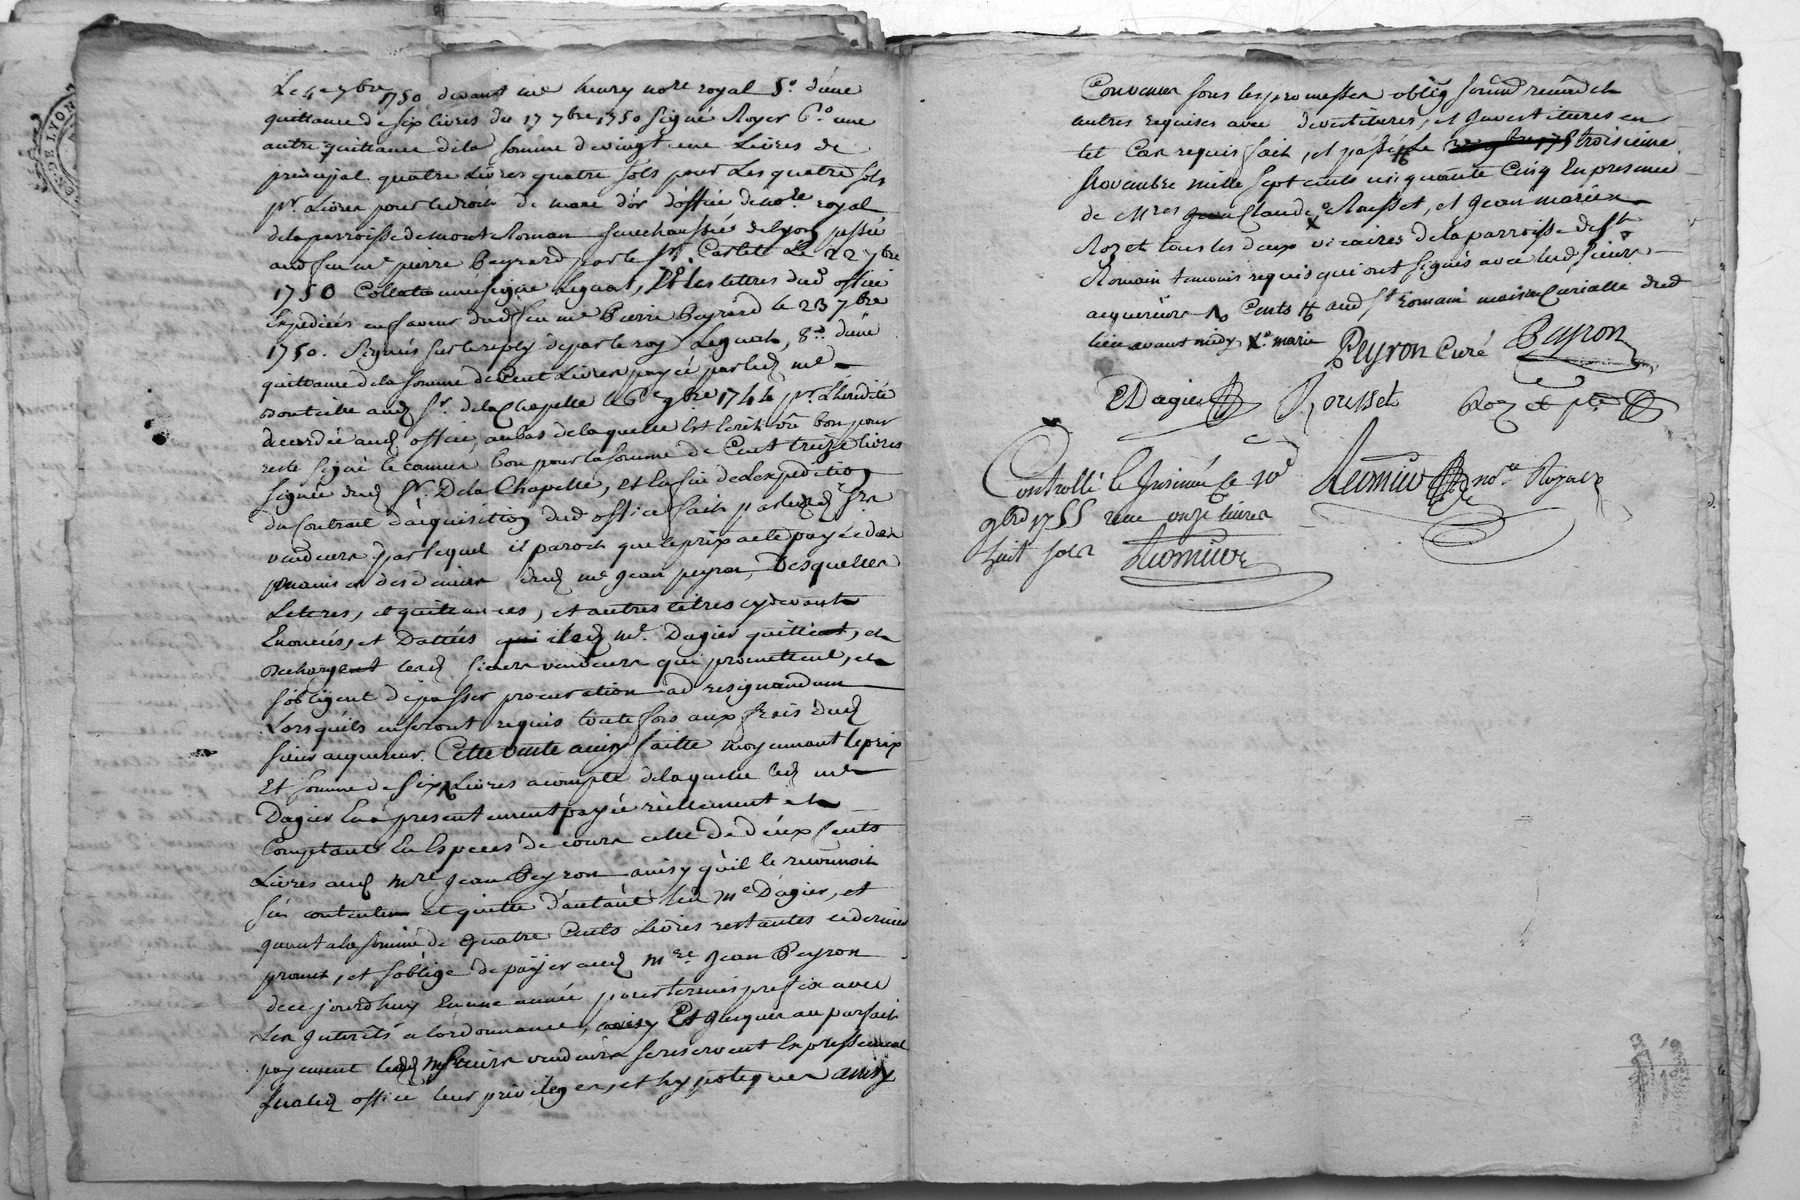 Le 4e 7bre 1750 devant me henry nore royal 5o. d'une
quittance de six livres du 17 7bre 1750 signé Royer 6o. une
autre quittance de la somme de vingt une Livres de
principal quatre Livres quatre sols pour Les quatre sols
pr. Livre pour le droit de marc d'or d'office de nore royal
de la parroisse de mont Roman senechaussée de Lyon passée
aud feu me pierre Beyrard par le Sr. Carlet Le 22 7bre
1750 Collationnée signé Legnat, Et les lettres dud office
Expediées en faveur dud feu me Pierre Beyrard le 23 7bre
1750. Signés sur le reply de par le roy Legnat, 8o. d'une
quittance de la somme de Cent Livres payée par led me
aud Sr. de la Chapelle le 6e 9bre 1744 pr. L'herédité
accordée aud office, au bas de laquelle Est Ecrit vû bon pour
reste signé le camus bon pour la somme de Cent treize livres
signée dud Sr. De la Chapelle, et la fin de L'expedition
du Contrat d'acquisition dud office fait par lesd Srs
vendeurs par lequel il paroit que le prix a été payé des
mains et deniers dud me Jean peyron, Desquelles
Lettres, et quittances, et autres titres cydevant
Enoncés, et Dattés led Me. Dagier quitte, et
decharge lesd sieurs vendeurs qui promettent, et
s'obligent de passer procuration ad resignandum
Lorsqu'ils en seront requis toute fois aux frais dud
sieur acquereur. Cette vente ainsy faitte moyennant le prix
Et somme de six Livres acompte de laquelle led me
Dagier En a presentement payé réellement et
Comptant En Especes de cours celle de deux Cents
Livres aud mre Jean Peyron ainsy qu'il le reconnoit
s'en contente et quitte d'autant led Me Dagier, et
quant a la somme de quatre Cents Livres restantes ce dernier
promet, et s'oblige de payer aud mre Jean Peyron
de ce jourd'huy En une année pour terme prefix avec
Les Interêts a l'ordonnance, Et jusques au parfait
payement lesd Sieurs vendeurs se reservent Expressement
sur led office leur privileges, et hypoteques ainsy
Convenu sous les promesses oblig soumd renond et
autres requises avec devestitures, et Investitures en
tel Cas requis fait, et passé Le troisieme
Novembre mille sept cents cinquante Cinq En presence
de Mres Claude Rousset, et Jean marie
Rozet tous les deux vicaires de la parroisse de St
Romain temoins requis qui ont signés avec lesd sieurs
acquereur Cents aud St Romain maison Curialle dud
lieu avant midy Xo. marie
Peyron Curé Peyron
Dagier Rousset Rozet ptre
Controllé et Insinué Ce 10e
9bre 1755 reçu onze livres
huit sols
nore Royal